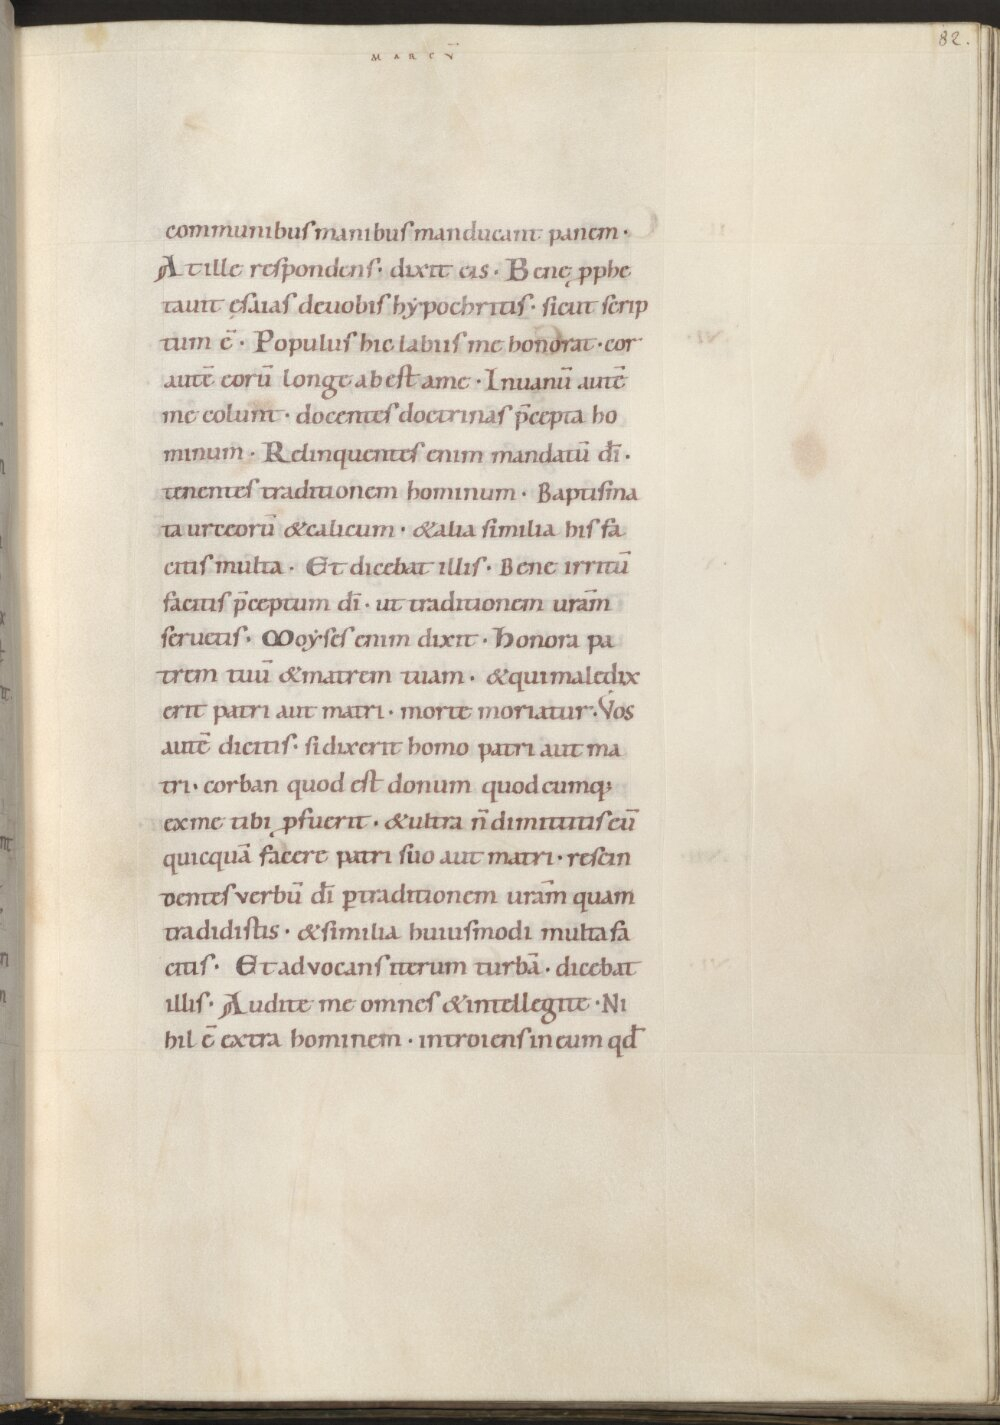 MARCV̄
82.
communibus manibus manducant panem·
At ille respondens· dixit eis· Bene ꝓphe
tauit ęsaias deuobis hẏpochritis· sicut scrip
tum ē· Populus hic labiis me honorat· cor
autē eorū longe abest ame· Inuanū autē
me colunt· docentes doctrinas p̄cepta ho
minum· Relinquentes enim mandatū dī·
tenentes traditionem hominum· Baptisma
ta urceorū &calicum· &alia similia his fa
citis multa· Et dicebat illis· Bene irritū
facitis p̄ceptum dī· ut traditionem urām
seruetis· Moẏses enim dixit· Honora pa
trem tuū &matrem tuam· &quimaledix
erit patri aut matri· morte moriatur· Vos
autē dicitis· si dixerit homo patri aut ma
tri· corban quod est donum quodcumq;
exme tibi ꝓfuerit· &ultra n̄ dimittitis eū
quicquā facere patri suo aut matri· rescin
dentes verbū dī ꝑtraditionem urām quam
tradidistis· &similia huiusmodi multa fa
citis· Et advocans iterum turbā· dicebat
illis· Audite me omnes &intellegite· Ni
hil ē extra hominem· introiens in eum qđ